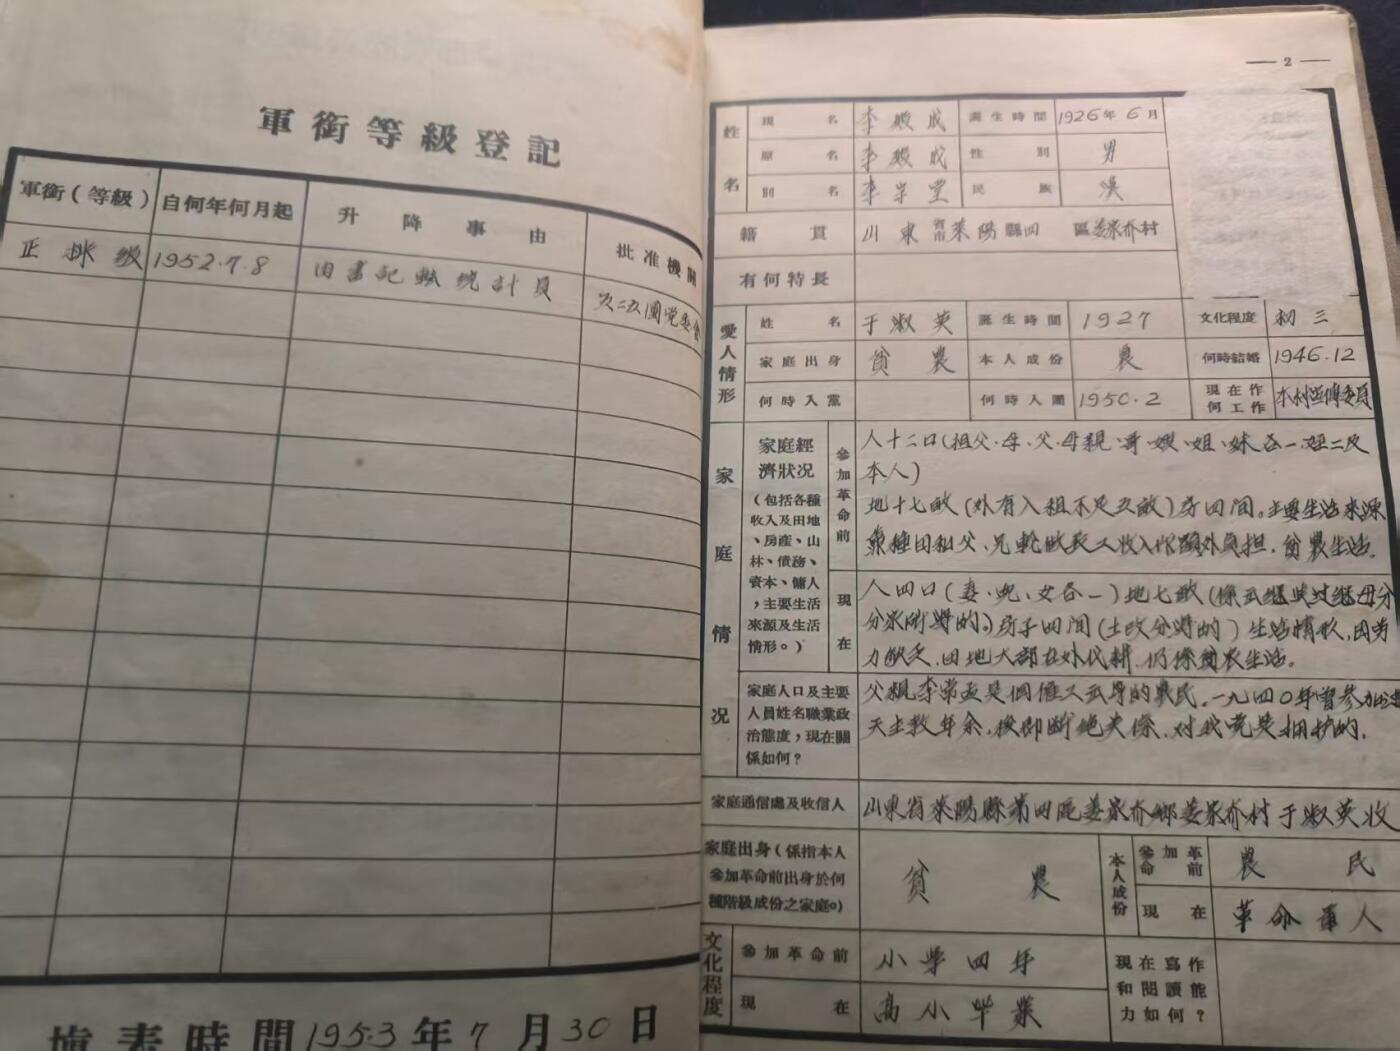 軍銜等級登記
軍銜（等級） 自何年何月起 升降事由 批准機關
正排級 1952.7.8 由書記轉統計員 六二五團党委會
填表時間1953年7月30日
— 2 —
姓名 現名 李殿成 誕生時間 1926年6月
原名 李殿成 性別 男
別名 李宗堂 民族 漢
籍貫 山東省市萊陽縣四區姜家夼村
有何特長
愛人情形 姓名 于淑英 誕生時間 1927 文化程度 初三
家庭出身 貧農 本人成份 農 何時結婚 1946.12
何時入黨 何時入團 1950.2 現在作何工作 本村宣傳委員
家庭情况 家庭經濟狀況（包括各種收入及田地、房產、山林、債務、資本、傭人，主要生活來源及生活情形。）
參加革命前 人十二口（祖父·母·父·母親·哥·嫂·姐·妹各一·姪二及
本人）
地十七畝（外有入租不足五畝）房四间。主要生活來源
種田和父、兄 工收入 額外負担．貧農生活。
現在 人四口（妻·兒、女各一）地七畝（係 繼 过繼母分
分家所得的）房子四间（土改分得的）生活情形，因劳
力缺乏．田地大部在外代耕．仍係貧农生活。
家庭人口及主要人員姓名職業政治態度，現在關係如何？
父親李 是個 的農民．一九四〇年曾參加过
天主教年余，後即断絕关係．对我党是拥护的．
家庭通信處及收信人 山東省萊陽縣第四區姜家夼鄉姜家夼村于淑英收
家庭出身（係指本人參加革命前出身於何種階級成份之家庭。） 貧農
本人成份 參加革命前 農民
現在 革命軍人
文化程度 參加革命前 小學四年
現在 高小毕業
現在寫作和閱讀能力如何？